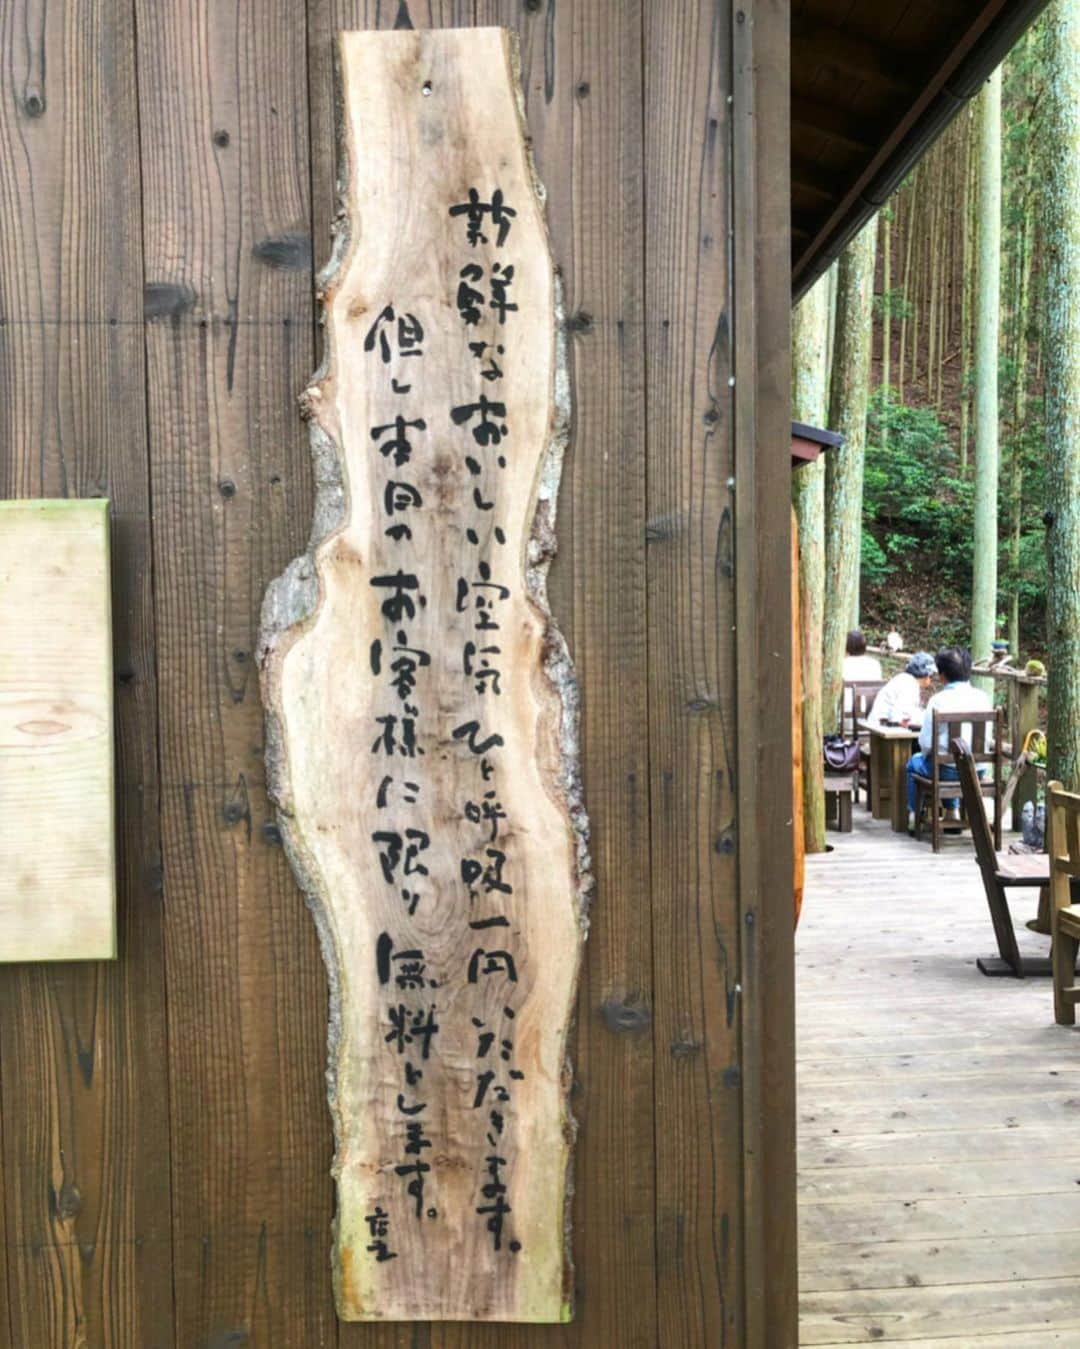 新鮮なおいしい空気ひと呼吸一円いただきます。
但し本日のお客様に限り無料とします。
店主